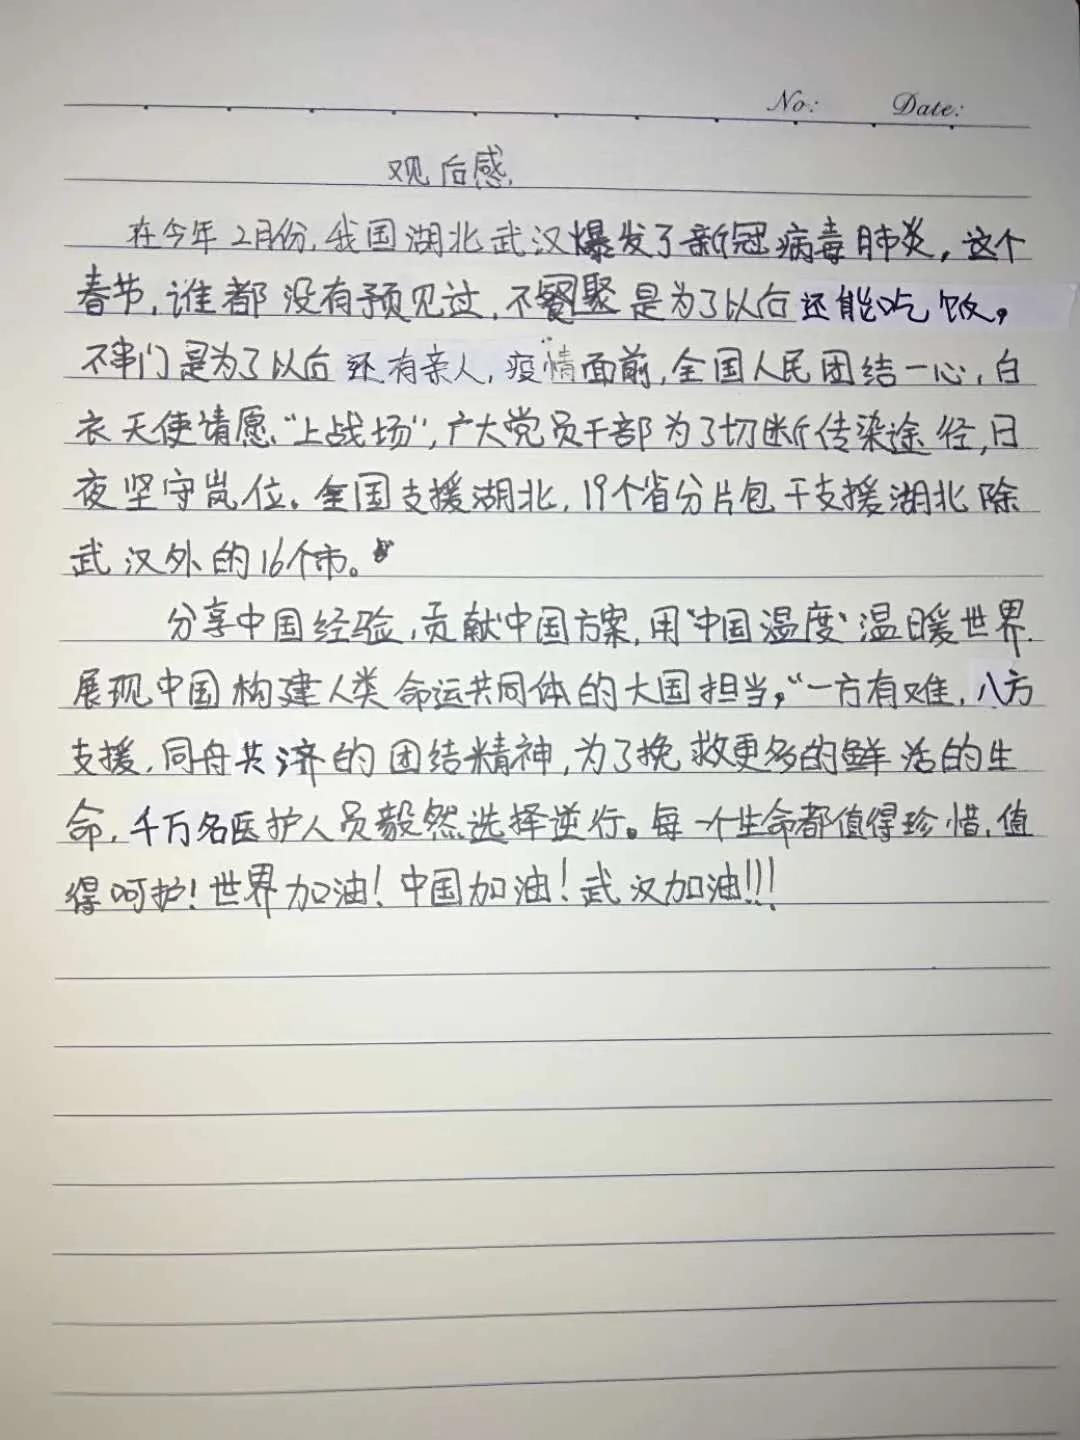 No: Date:
观后感.
在今年2月份,我国湖北武汉爆发了新冠病毒肺炎，这个
春节,谁都没有预见过,不聚是为了以后还能吃饭。
不串门是为了以后还有亲人,疫情面前,全国人民团结一心,白
衣天使请愿“上战场”,广大党员干部为了切断传染途径,日
夜坚守岗位。全国支援湖北,19个省分片包干支援湖北除
武汉外的16个市。
分享中国经验,贡献中国方案,用“中国温度”温暖世界.
展现中国构建人类命运共同体的大国担当,“一方有难,八方
支援,同舟共济的团结精神,为了挽救更多的鲜活的生
命,千万名医护人员毅然选择逆行。每一个生命都值得珍惜,值
得呵护!世界加油!中国加油!武汉加油!!!